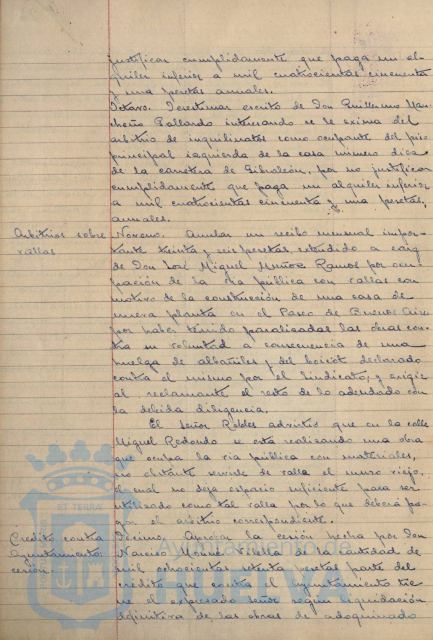 justificar cumplidamente que paga un al-
quiler inferior a mil cuatrocientas cincuenta
y una pesetas anuales.
Octavo. Desestimar escrito de Don Guillermo Mar-
cheño Gallardo interesando se le exima del
arbitrio de inquilinatos como ocupante del piso
principal izquierda de la casa número dice
de la carretera de Gibraleón, por no justificar
cumplidamente que paga un alquiler inferior
a mil cuatrocientas cincuenta y una pesetas,
anuales.
Arbitrios sobre
vallas
Noveno. Anular un recibo mensual impor-
tante treinta y seis pesetas extendido a cargo
de Don José Miguel Muñoz Ramos por ocu-
pación de la vía pública con vallas con
motivo de la construcción de una casa de
nueva planta en el Paseo de Buenos Aires
por haber tenido paralizadas las obras contra
su voluntad a consecuencia de una
huelga de albañiles y del boicot declarado
contra el mismo por el Sindicato, y exigir
al reclamante el resto de lo adeudado con
la debida diligencia.
El Señor Robles advirtió que en la calle
Miguel Redondo se está realizando una obra
que ocupa la vía pública con materiales,
no obstante servirle de valla el muro viejo,
el cual no deja espacio suficiente para ser
utilizado como tal valla por lo que deberá pa-
gar el arbitrio correspondiente.
Crédito contra
Ayuntamiento:
cesión.
Décimo. Aprobar la cesión hecha por Don
Narciso de la cantidad de
mil ochocientas setenta pesetas parte del
crédito que contra el ayuntamiento tie-
ne el expresado señor según liquidación
definitiva de las obras de adoquinado
PORTUS MARIS ET TERRAE CUSTODIA
Ayuntamiento de
HUELVA